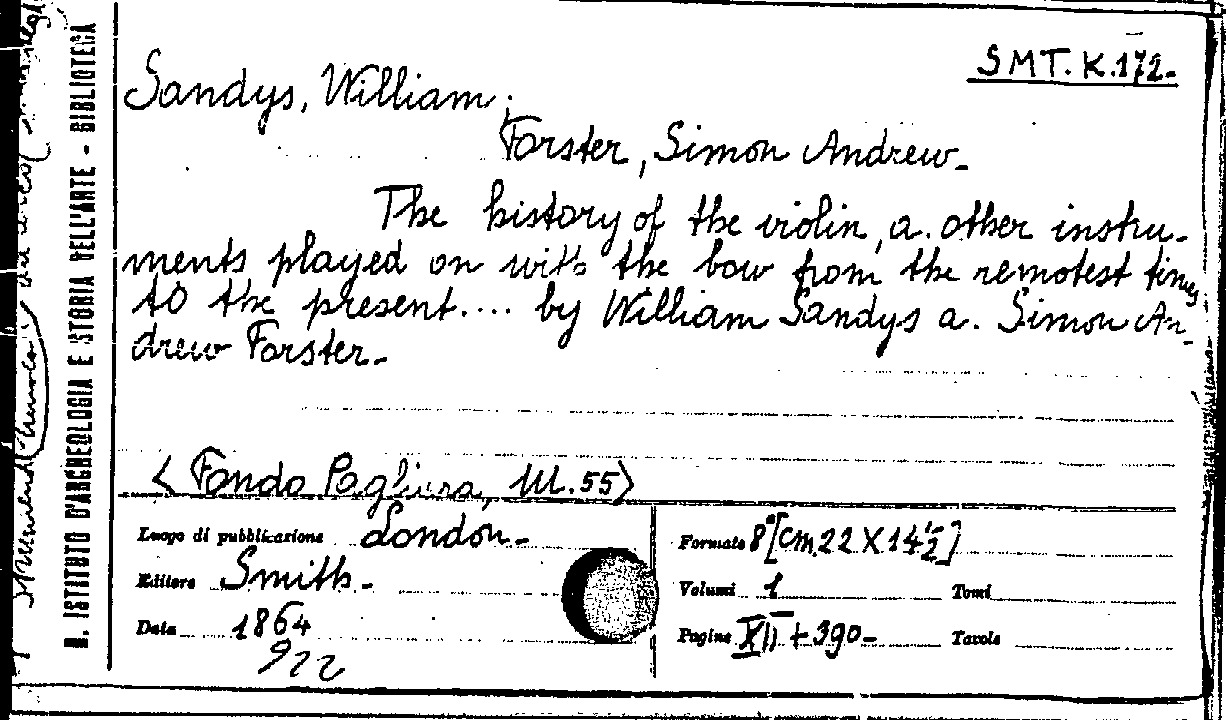 SMT. K.172-
Sandys, William;
Forster, Simon Andrew-
The history of the violin, a. other instru-
ments played on with the bow from the remotest times
to the present.... by William Sandys a. Simon An-
drew Forster-
<Fondo Pagliara, III.55>
Luogo di pubblicazione London-
Editore Smith-
Data 1864
922
Formato 8°[cm 22 X 14½]
Volumi 1 Tomi
Pagine XII + 390- Tavole
R. ISTITUTO D'ARCHEOLOGIA E STORIA DELL'ARTE - BIBLIOTECA
Strumenti